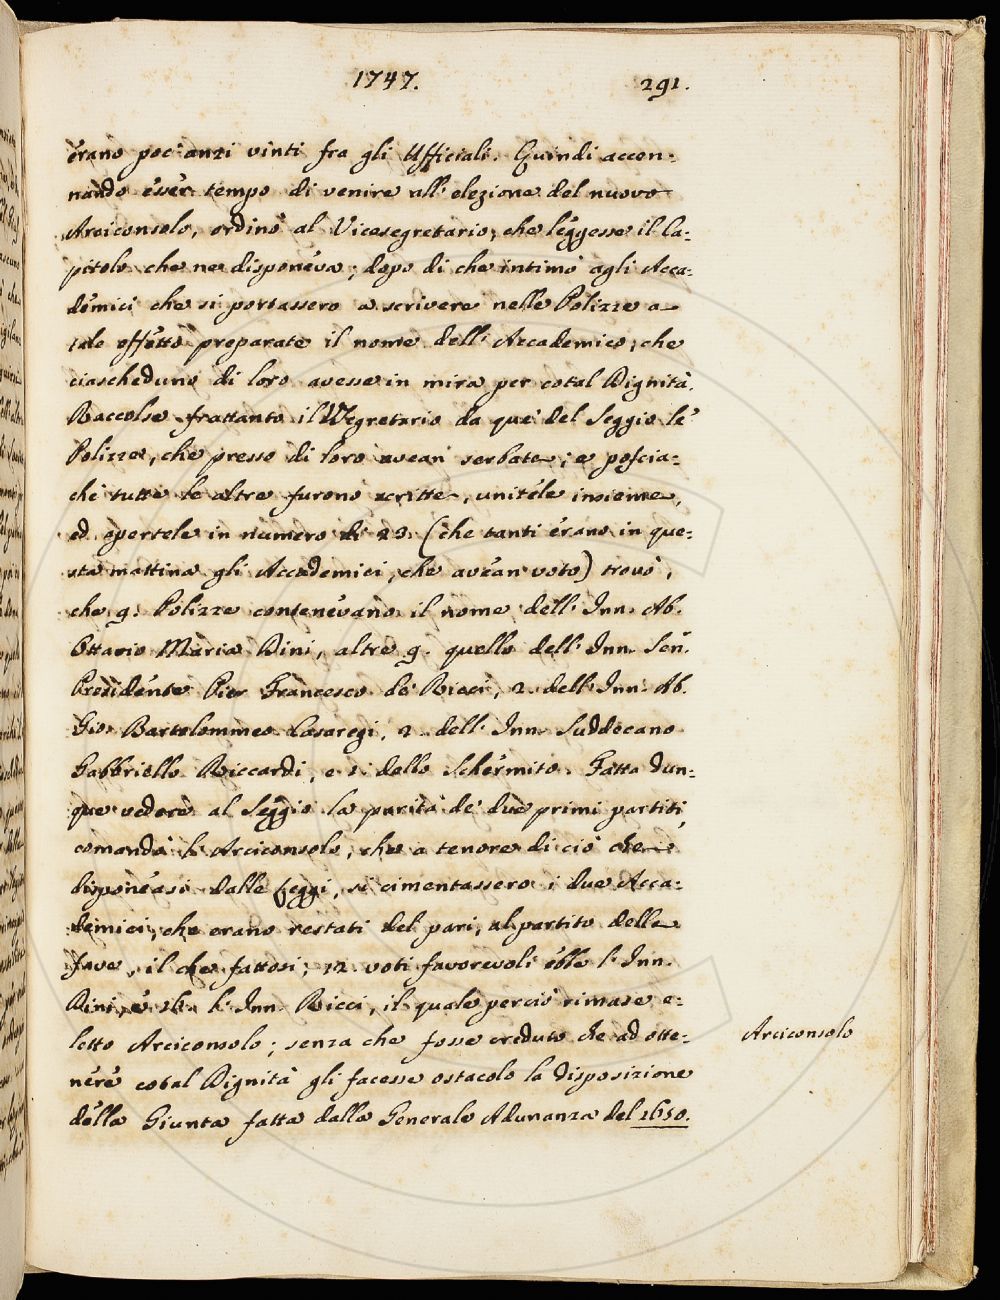 1747. 291.
érano poc'anzi vinti fra gli Ufficiali. Quindi accen-
nando ésser tempo di venire all'elezione del nuovo
Arciconsolo, ordinò al Vicesegretario, che léggesse il Ca-
pitolo che ne disponéva; dopo di che intimò agli Acca-
démici che si portassero a scrivere nelle Polizze a
tale effétto preparate il nome dell'Accademico, che
ciascheduno di loro avesse in mira per cotal Dignità.
Raccolse frattanto il Segretario da que' del Seggio le
Polizze, che presso di loro avean serbate; e poscia-
chè tutte le altre furono scritte, unitéle insieme,
ed apertele in numero di 23. (che tanti érano in que-
sta mattina gli Accademici, che avéan voto) trovò,
che 9. Polizze contenévano il nome dell'Inn. Ab.
Ottavio Maria Dini, altre 9. quello dell'Inn. Sen.
Presidénte Pier Francesco de' Ricci, 2. dell'Inn. Ab.
Gio. Bartolommeo Casaregi, 2. dell'Inn. Suddecano
Gabbriello Riccardi, e 1. dello Schérmito. Fatta dun-
que vedere al Séggio la parità de' due primi partiti,
comandò l'Arciconsolo, che a tenore di ciò che
disponéasi dalle Leggi, si cimentassero i due Acca-
démici, che erano restati del pari, al partito delle
fave, il che fattosi, 12 voti favorevoli ébbe l'Inn.
Dini, e 16. l'Inn. Ricci, il quale perciò rimase e-
letto Arciconsolo; senza che fosse creduto che ad otte-
nére cotal Dignità gli facesse ostacolo la disposizione
délla Giunta fatta dalla Generale Adunanza del 1650.
Arciconsolo